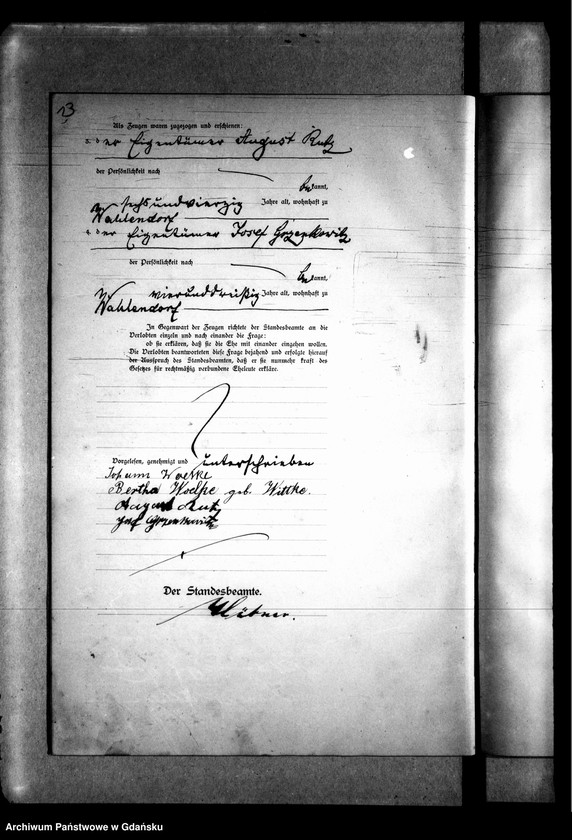 13
Als Zeugen waren zugezogen und erschienen:
der Eigentümer August Rutz
der Persönlichkeit nach
bekannt,
sechsundvierzig Jahre alt, wohnhaft zu
Wahlendorf
der Eigentümer Josef Grzenkowitz
der Persönlichkeit nach
bekannt,
vierunddreißig Jahre alt, wohnhaft zu
Wahlendorf
In Gegenwart der Zeugen richtete der Standesbeamte an die
Verlobten einzeln und nach einander die Frage:
ob sie erklären, daß sie die Ehe mit einander eingehen wollen.
Die Verlobten beantworteten diese Frage bejahend und erfolgte hierauf
der Ausspruch des Standesbeamten, daß er sie nunmehr kraft des
Gesetzes für rechtmäßig verbundene Eheleute erkläre.
Vorgelesen, genehmigt und unterschrieben
Johann Woelke
Bertha Woelke geb. Wittke.
August Rutz
Josef Grzenkowitz
Der Standesbeamte.
Archiwum Państwowe w Gdańsku